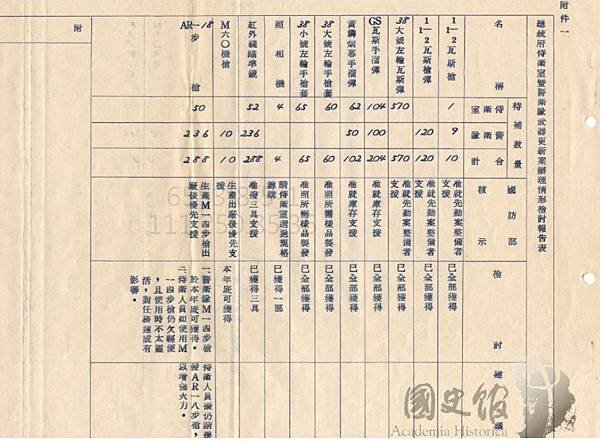 附件一
總統府侍衛室暨警衛隊武器更新案辦理情形檢討報告表
名稱
待補數量
侍衛室
警衛隊
合計
國防部核示
檢討
建議
1 1—2瓦斯槍
1
9
10
准就先勤案整備者支援
已全部獲得
1 1—2瓦斯槍彈
120
120
准就先勤案整備者支援
已全部獲得
38大號左輪瓦斯彈
570
570
准就先勤案整備者支援
已全部獲得
GS瓦斯手溜彈
104
100
204
准就庫存支援
已全部獲得
黃磷烟幕手溜彈
62
50
102
准就庫存支援
已全部獲得
38大號左輪手槍套
60
60
准照所需樣品製發
已全部獲得
38小號左輪手槍套
65
65
准照所需樣品製發
已全部獲得
照相機
4
4
請侍衛室選送規格籌購
已獲得一部
紅外線瞄準鏡
52
236
288
准撥三具支援
已獲得三具
M六〇機槍
10
10
生產出廠後優先支援
本年底可獲得
AR—18步槍
50
236
288
生產M一四步槍出廠後優先支援
一、警衛隊M一四步槍於本年底可獲得。
二、侍衛人員如使用M一四步槍仍欠輕便,且使用時不太靈活,對任務達成有影響。
侍衛人員擬仍請撥發AR一八步槍,以增強火力。
附
國史館
Academia Historica